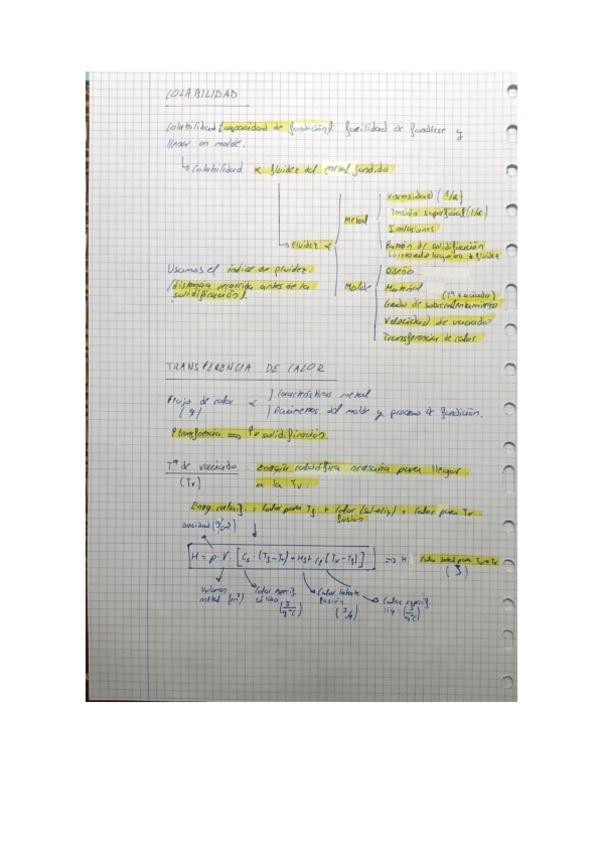 COLABILIDAD
Colabilidad (capacidad de fundición): facilidad de fundirse y
llenar un molde.
↳ Colabilidad ∝ fluidez del metal fundido
↳ Fluidez ∝
Metal
Viscosidad (1/α)
Tensión superficial (1/α)
Inclusiones
Patrón de solidificación
Molde
Diseño
Material
(Tª vaciado)
Grado de sobrecalentamiento
Velocidad de vaciado
Transferencia de calor
Usamos el índice de fluidez
(distancia recorrida antes de la
solidificación).
TRANSFERENCIA DE CALOR
Flujo de calor ∝ características metal
(q)
Parámetros del molde y proceso de fundición.
transferencia ⇒ solidificación.
Tª de vaciado
(Tv)
Energía calorífica necesaria para llegar
a la Tv:
Energ. calorif. = Calor para Tf + Calor (sol→liq) + Calor para Tv
fusión
densidad
H = ρ · V · [Cs · (Tf - To) + Hf + Cl (Tv - Tf)] ⇒ H: Calor total para
(J)
Volumen
metal (m³)
Calor especif.
sólido
Calor latente
fusión
Calor especif.
liq